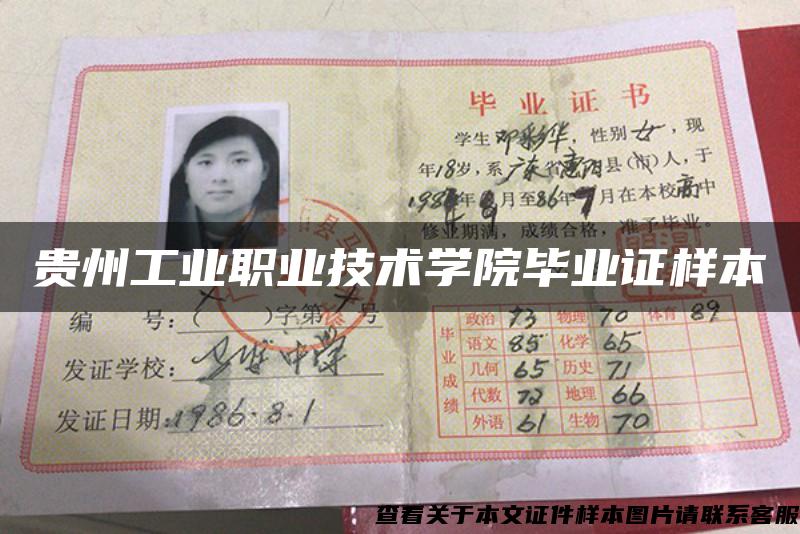 毕业证书
学生邓彩华，性别女，现
年18岁，系广东省惠阳县(市)人，于
月至86年7月在本校高中
修业期满，成绩合格，准予毕业。
贵州工业职业技术学院毕业证样本
编 号：( )字第 号
发证学校：中学
发证日期：1986.8.1
毕业成绩
政治 73 物理 70 体育 89
语文 85 化学 65
几何 65 历史 71
代数 72 地理 66
外语 61 生物 70
查看关于本文证件样本图片请联系客服